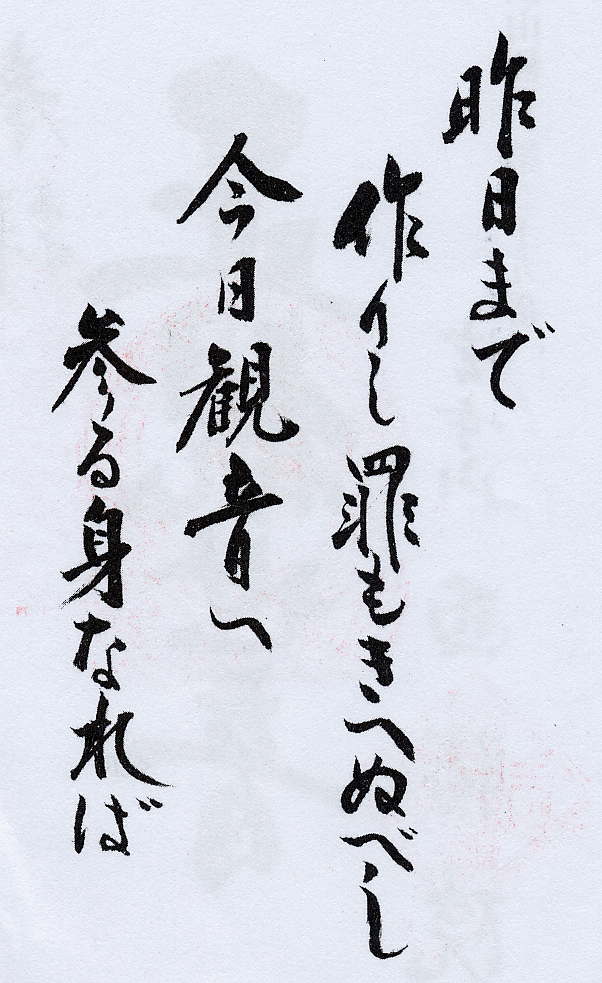 昨日まで
作りし罪もきへぬべし
今日観音へ
参る身なれば